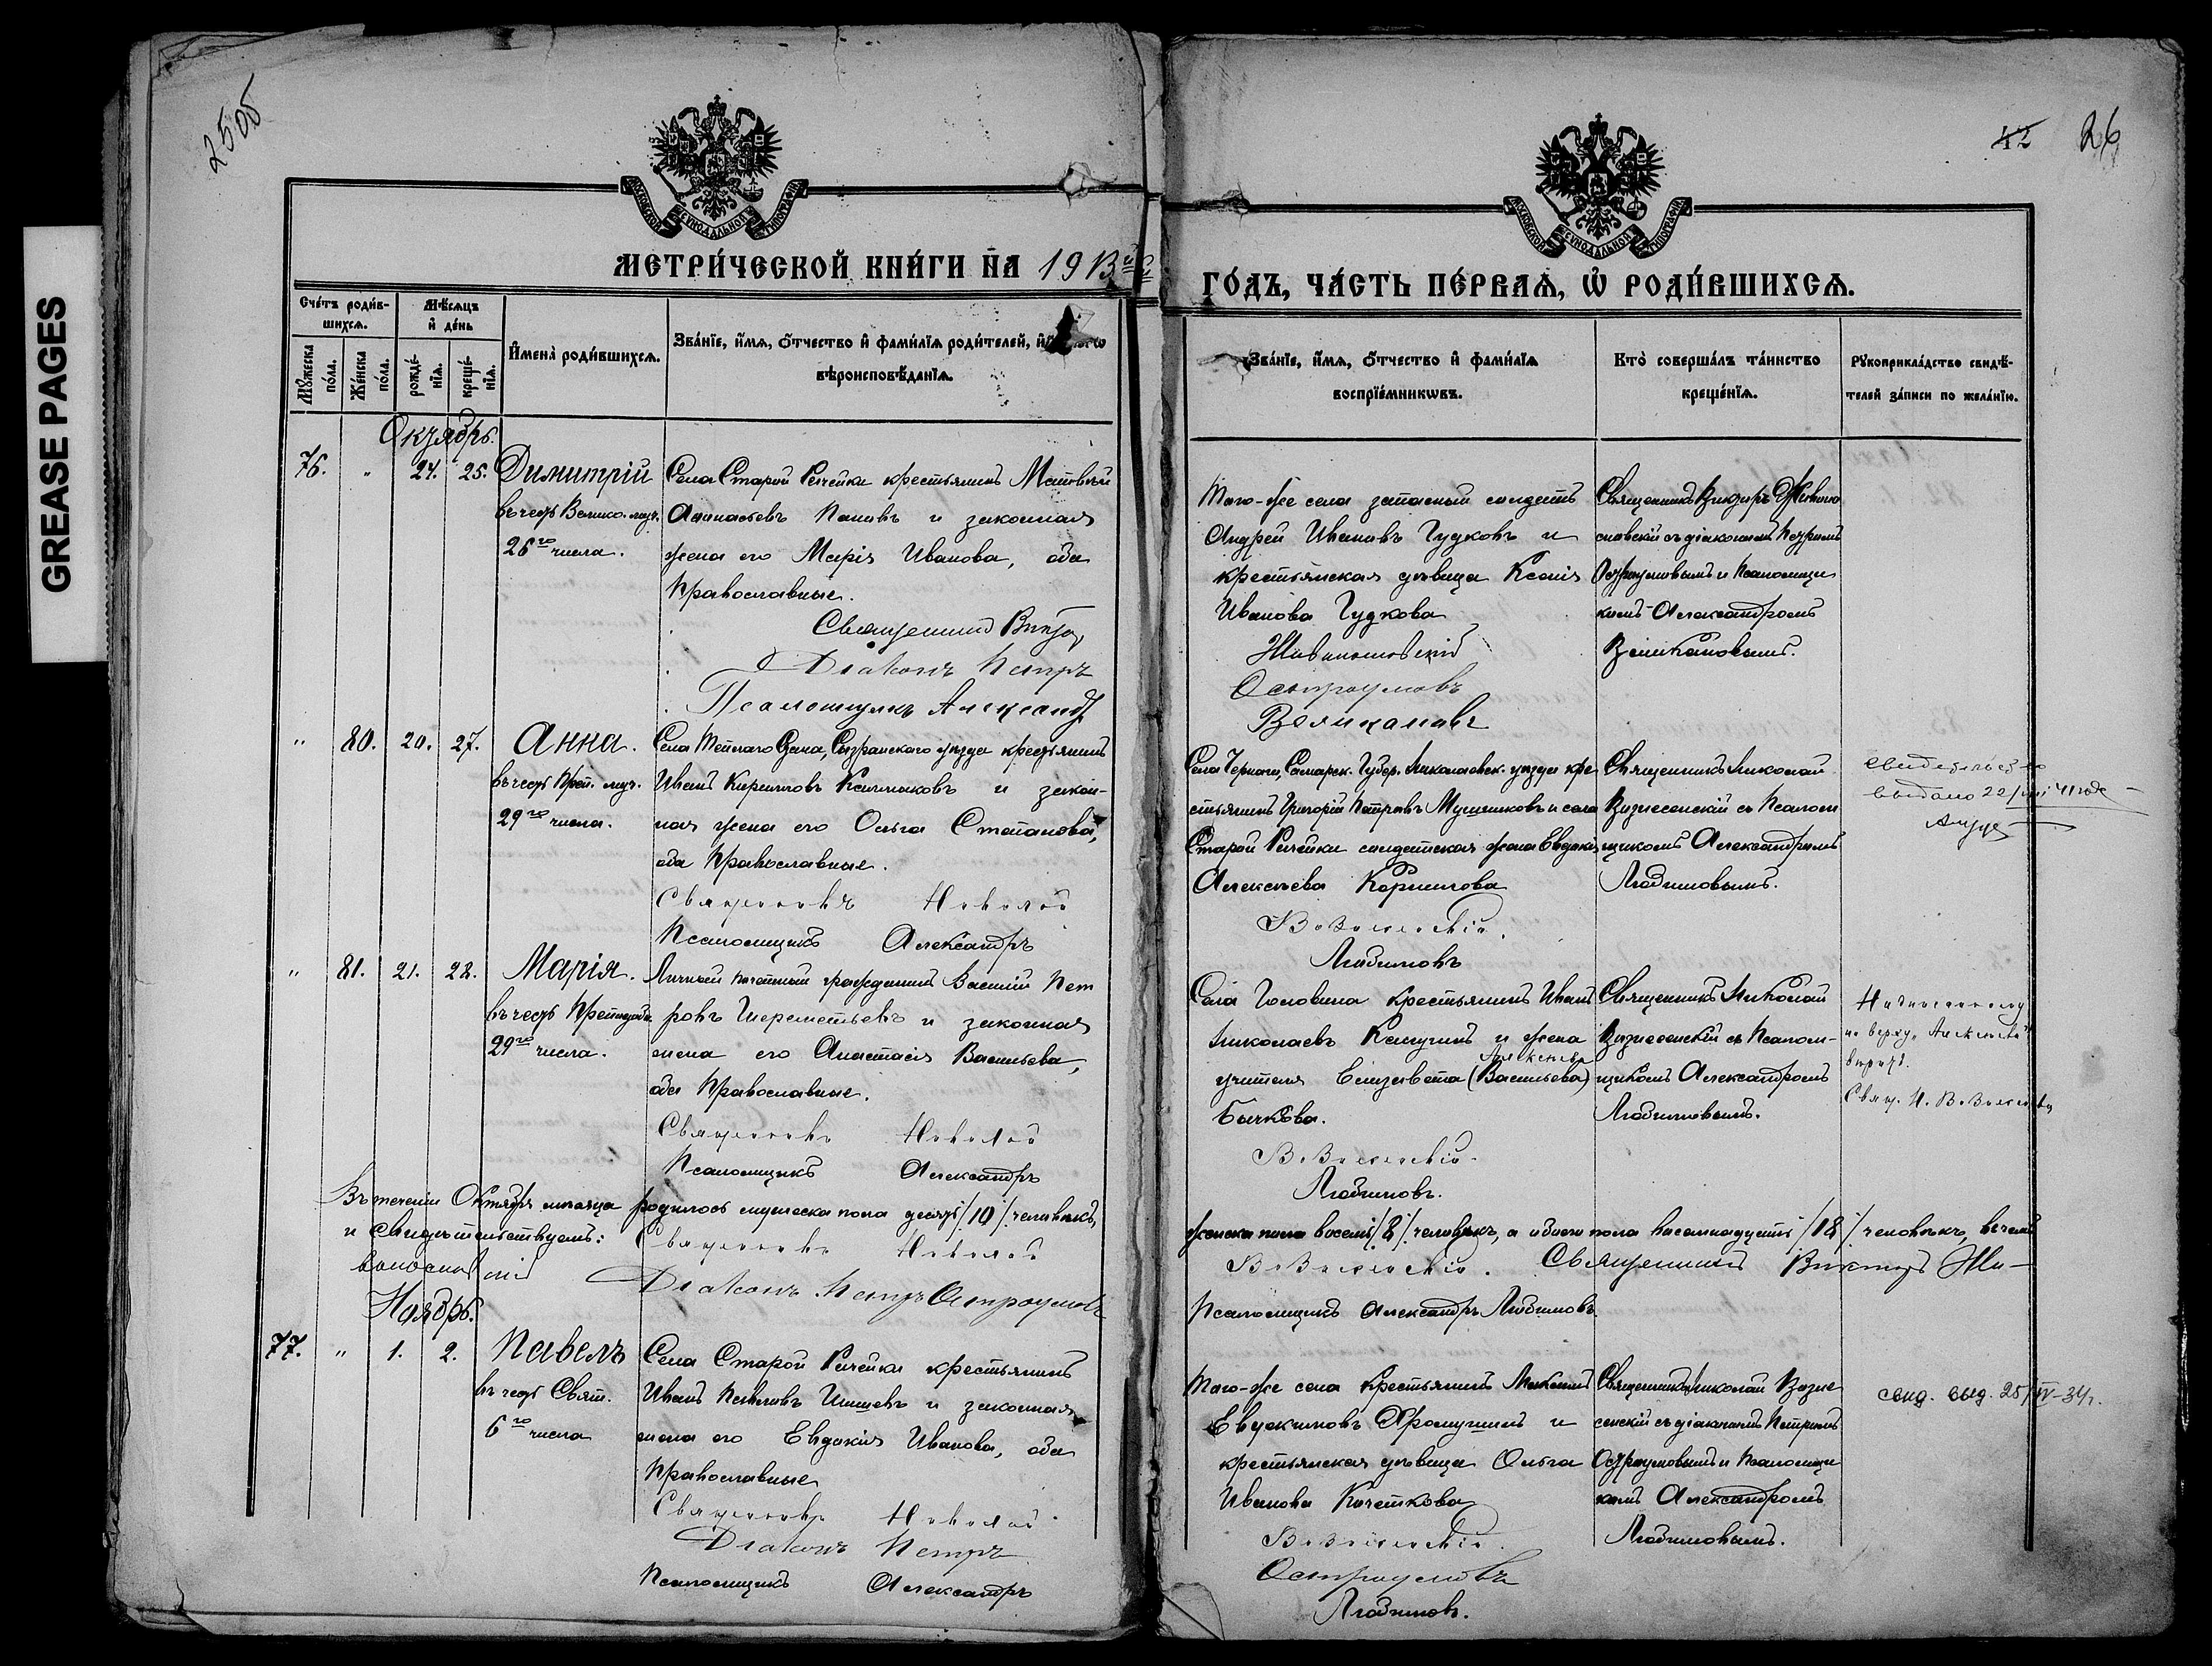 GREASE PAGES
42 26
МЕТРИ́ЧЕСКОЙ КНИ́ГИ НА 19
ГО́ДЪ, ЧА́СТЬ ПЕ́РВАѦ, Ѡ РОДИ́ВШИХСѦ.
Сче́тъ роди́в-
шихсѧ.
Мѣ́сѧцъ
и҆ де́нь
Мꙋ́жеска по́ла.
Же́нска по́ла.
рожде́-
нїѧ.
креще́-
нїѧ.
И҆мена̀ роди́вшихсѧ.
Зва́нїе, и҆́мѧ, ѻ҆́тчество и҆ фами́лїѧ роди́телей, и҆
вѣроисповѣ́данїѧ.
Зва́нїе, и҆́мѧ, ѻ҆́тчество и҆ фами́лїѧ
воспрїе́мникѡвъ.
Кто̀ соверша́лъ та́инство
креще́нїѧ.
Рꙋкоприкла́дство свидѣ́-
телей за́писи по жела́нїю.
Октябрь.
76. " 24. 25. Димитрій
въ честь Велико-муч.
26го числа.
Села Старой Рачейки крестьянинъ Матвѣй
и законная
жена его Марія Иванова, оба
православные.
Священникъ Викторъ
Діаконъ Петръ
Псаломщикъ Александръ
Того-же села запасный солдатъ
Андрей Ивановъ Гудковъ и
крестьянская дѣвица Ксенія
Иванова Гудкова
Остроумовъ
Великановъ
Священникъ Викторъ
съ діакономъ Петромъ
Остроумовымъ и псаломщи
комъ Александромъ
Великановымъ.
" 80. 20. 27. Анна.
въ честь Преп. муч.
29го числа.
Села Сызранскаго уѣзда крестьянинъ
Иванъ Кирилловъ и закон-
ная жена его Ольга Степанова,
оба православные.
Священникъ Николай
Псаломщикъ Александръ
Самарск. Губер. Николаевск. уѣзда кре
стьянинъ Григорій Петровъ и села
Старой Рачейки солдатская жена Евдокія
Алексѣева Корнилова
Вознесенскій.
Любимовъ
Священникъ Николай
Вознесенскій съ псалом
щикомъ Александромъ
Любимовымъ.
свидетельство
выдано 22/
" 81. 21. 28. Марія.
въ честь
29го числа.
Личный почетный гражданинъ Василій Пет
ровъ Шереметьевъ и законная
жена его Анастасія Васильева,
оба православные.
Священникъ Николай
Псаломщикъ Александръ
Села Головина крестьянинъ Иванъ
Николаевъ и жена
Алексѣева
учителя Елизавета (Васильева)
Бычкова.
Вознесенскій.
Любимовъ.
Священникъ Николай
Вознесенскій съ псалом-
щикомъ Александромъ
Любимовымъ.
Надписанному
на верху „Алексѣева"
вѣрить.
Свящ. Н. Вознесенскій
Въ теченіи Октября мѣсяца родилось мужеска пола десять /10/ человѣкъ,
женска пола восемь /8/ человѣкъ, а обоего пола восемнадцать /18/ человѣкъ, въ чемъ
и свидѣтельствуемъ: Священникъ Николай
Вознесенскій. Священникъ Викторъ Жи-
Діаконъ Петръ Остроумовъ
Псаломщикъ Александръ Любимовъ.
Ноябрь.
77. " 1. 2. Павелъ
въ честь Свят.
6го числа
Села Старой Рачейки крестьянинъ
Иванъ Павловъ и законная
жена его Евдокія Иванова, оба
православные
Священникъ Николай
Діаконъ Петръ
Псаломщикъ Александръ
Того-же села крестьянинъ
Евдокимовъ и
крестьянская дѣвица Ольга
Иванова Кочеткова
Вознесенскій.
Остроумовъ
Любимовъ.
Священникъ Николай Возне
сенскій съ діакономъ Петромъ
Остроумовымъ и псаломщи
комъ Александромъ
Любимовымъ.
свид. выд. 25/IV-34г.